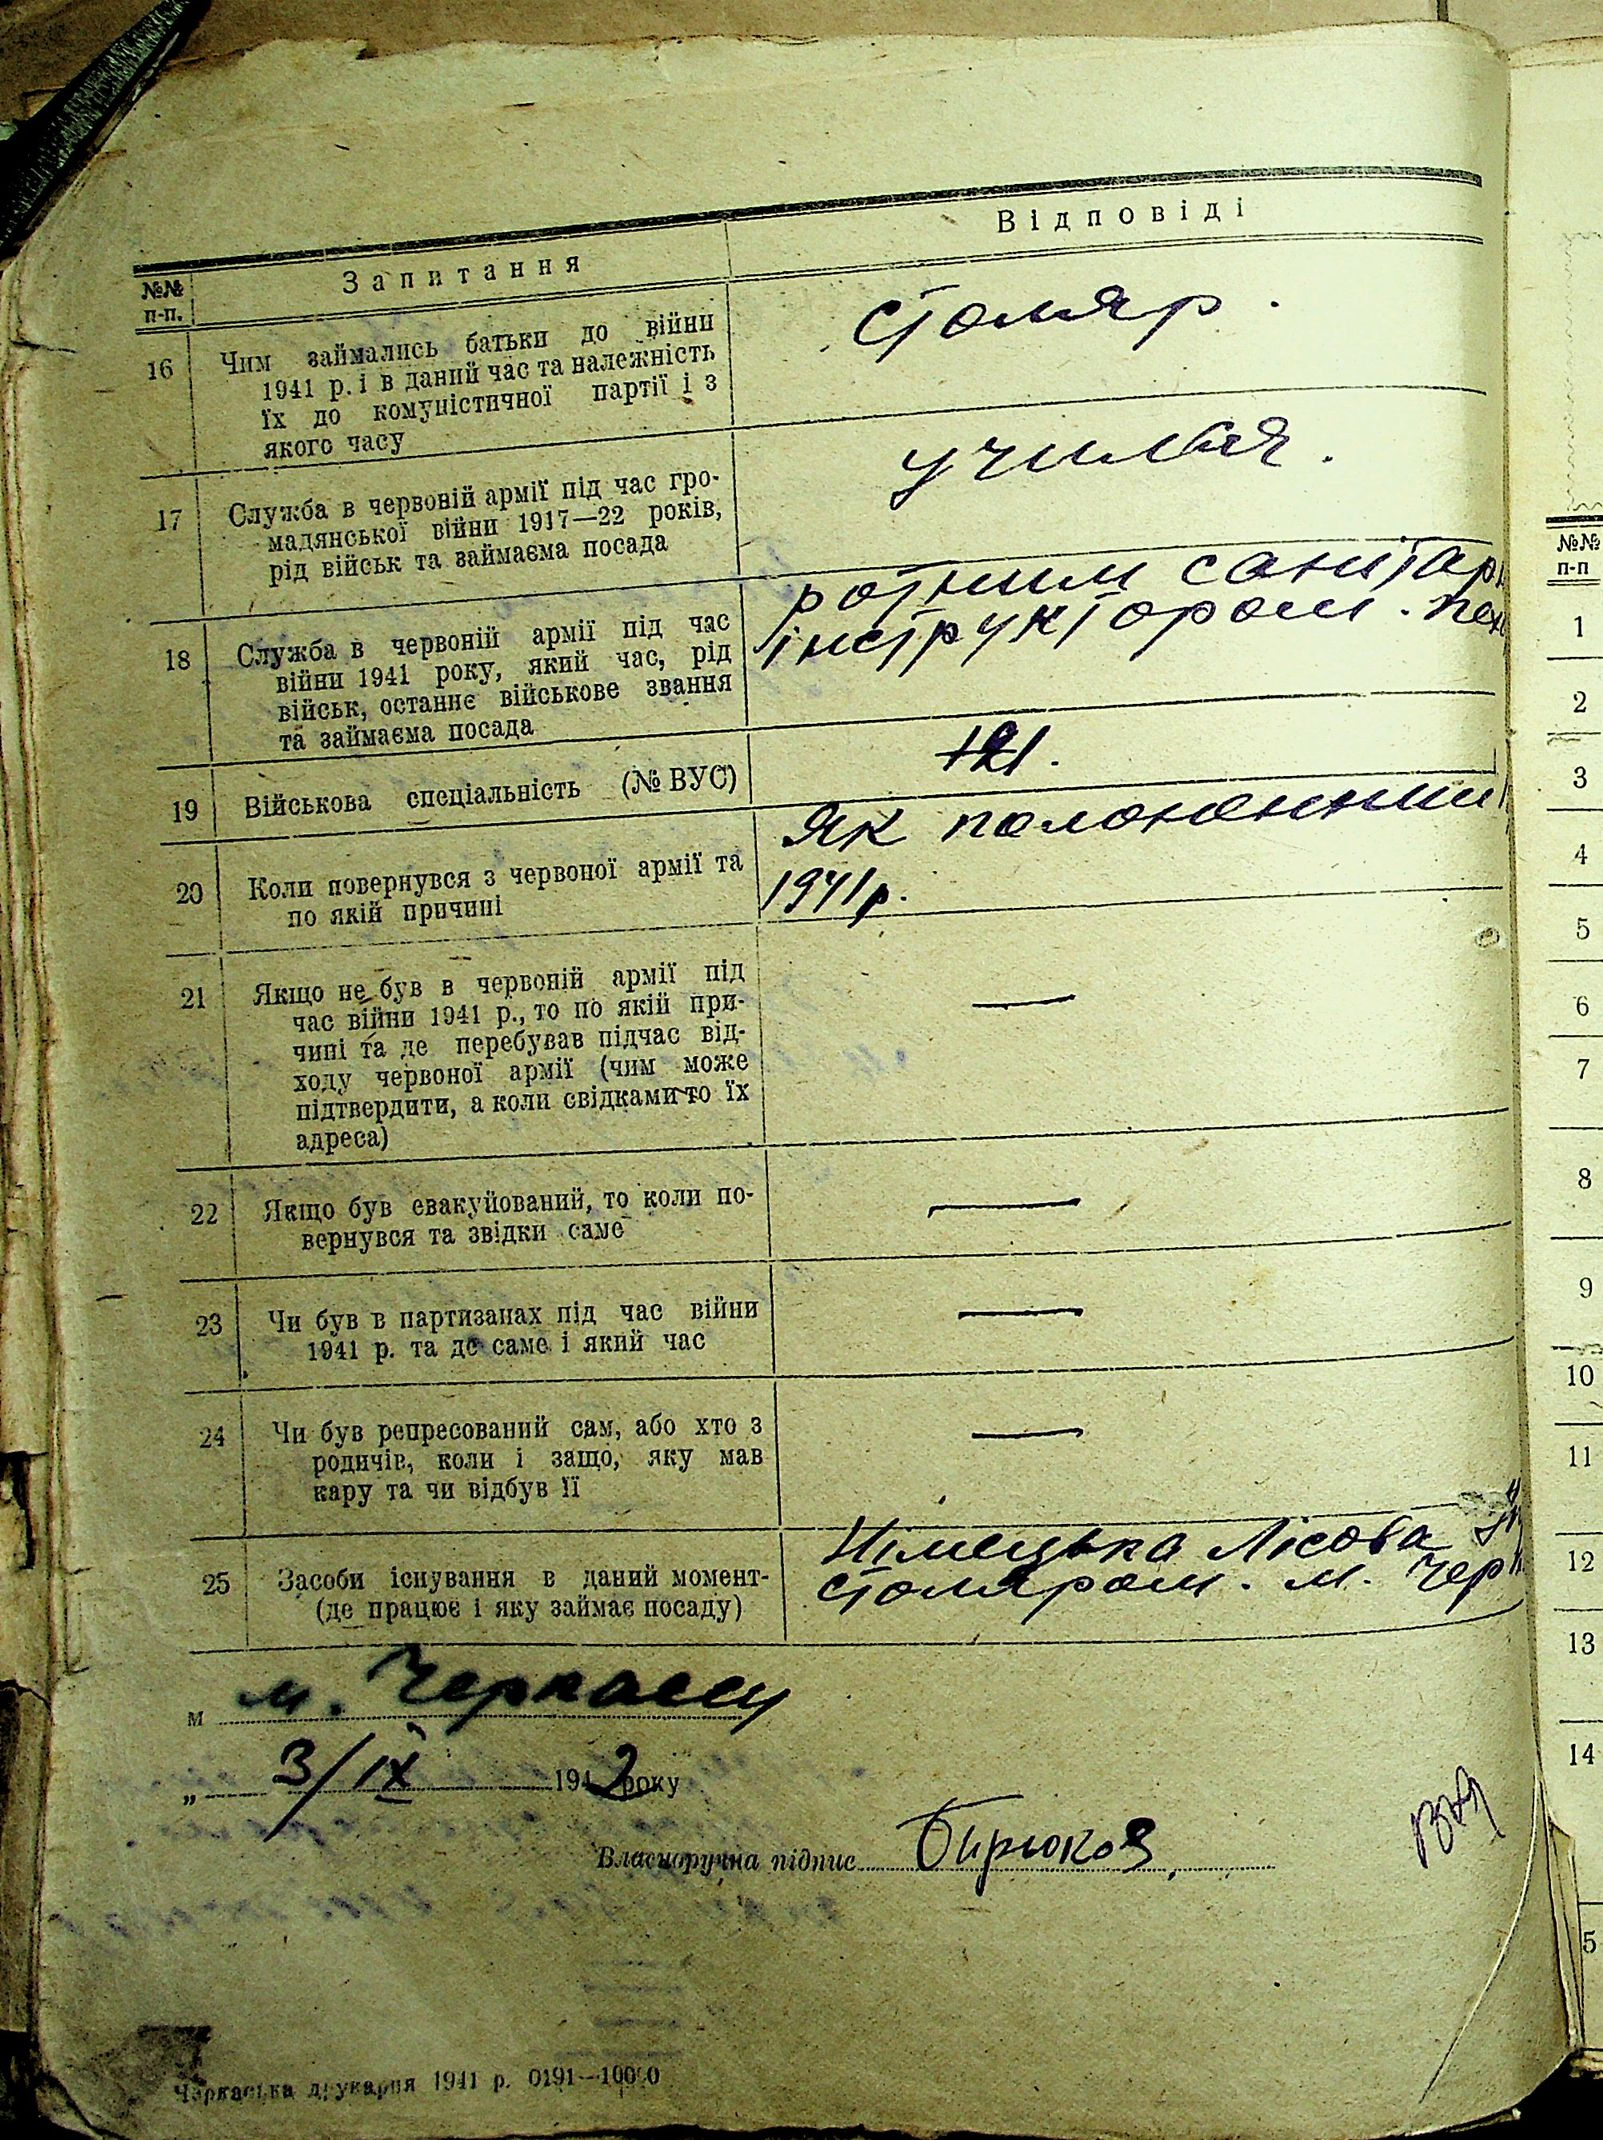 Відповіді
№№ п-п. Запитання
16 Чим займались батьки до війни
1941 р. і в даний час та належність
їх до комуністичної партії і з
якого часу
столяр.
17 Служба в червоній армії під час гро-
мадянської війни 1917—22 років,
рід військ та займаєма посада
учився.
18 Служба в червоній армії під час
війни 1941 року, який час, рід
військ, останнє військове звання
та займаєма посада
ротним санітар
інструктором.
19 Військова спеціальність (№ ВУС)
121.
20 Коли повернувся з червоної армії та
по якій причині
Як полоненний
1941 р.
21 Якщо не був в червоній армії під
час війни 1941 р., то по якій при-
чині та де перебував підчас від-
ходу червоної армії (чим може
підтвердити, а коли свідками то їх
адреса)
—
22 Якщо був евакуйований, то коли по-
вернувся та звідки саме
—
23 Чи був в партизанах під час війни
1941 р. та де саме і який час
—
24 Чи був репресований сам, або хто з
родичів, коли і защо, яку мав
кару та чи відбув її
—
25 Засоби існування в даний момент-
(де працює і яку займає посаду)
Німецька Лісова
столяром. м. Черк
м м. Черкассы
„ 3/IX 1942 року
Власноручна підпис Бирюков
Черкаська друкарня 1941 р. 0191—10000
№№
п-п
1
2
3
4
5
6
7
8
9
10
11
12
13
14
5